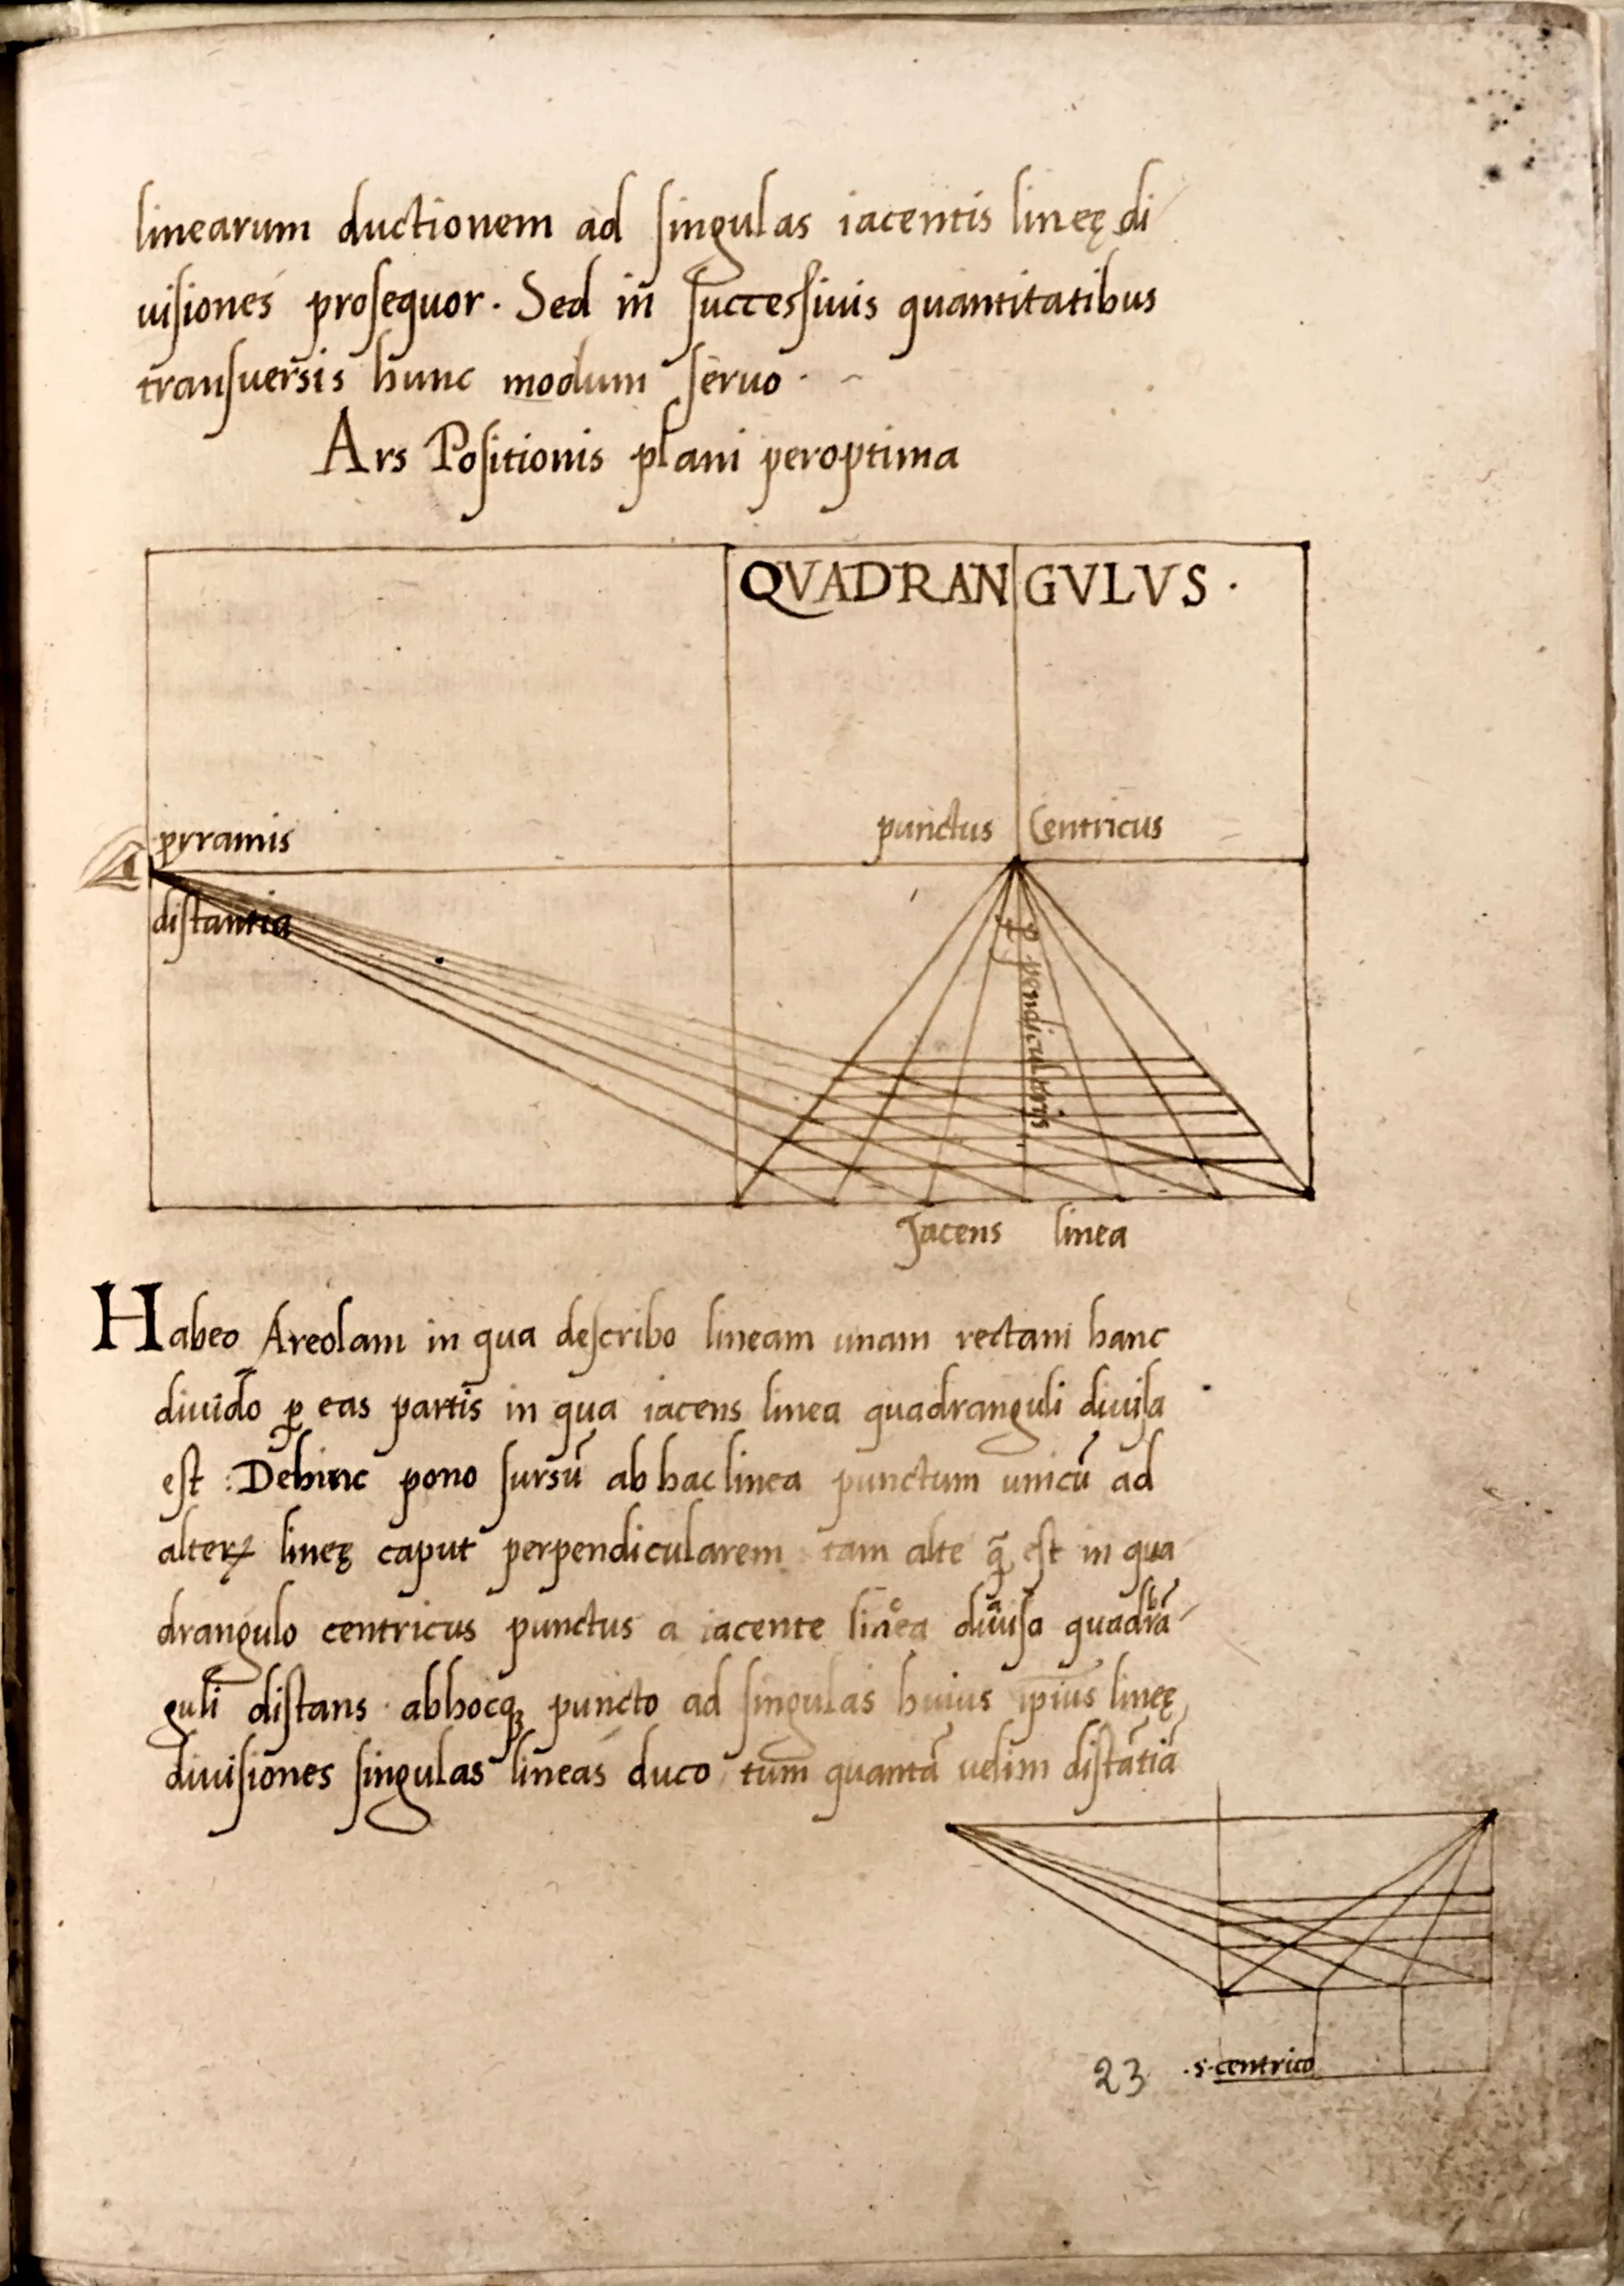 linearum ductionem ad singulas iacentis lineę di
uisiones prosequor. Sed in successiuis quantitatibus
transuersis hunc modum seruo.
Ars Positionis plani peroptima
QVADRANGVLVS.
pyramis
punctus Centricus
distantia
Ꝑpendicularis
Jacens linea
Habeo Areolam in qua describo lineam unam rectam hanc
diuido ꝑ eas partis in qua iacens linea quadranguli diuisa
est : Dehinc pono sursū ab hac linea punctum unicū ad
alterꝝ lineę caput perpendicularem tam alte ꝗ̄ est in qua
drangulo centricus punctus a iacente linea diuisa quadrā
guli distans abhocqꝫ puncto ad singulas huius ip̄ius lineę
diuisiones singulas lineas duco tum quantā uelim distātiā
23 .s.centrico